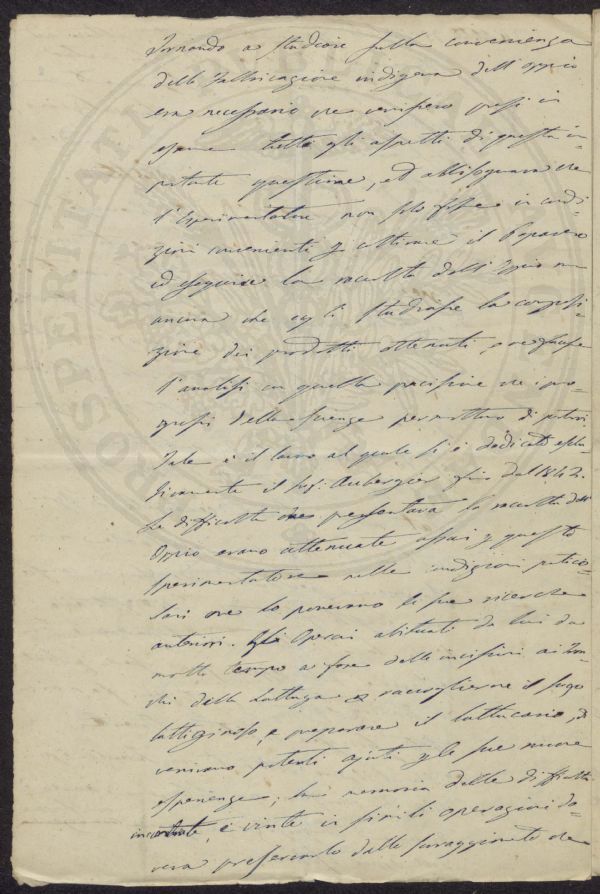 Tornando a studiare sulla convenienza
della Fabbricazione indigena dell'oppio
era necessario che venissero presi in
esame tutti gli aspetti di questa im-
portante questione, ed abbisognava che
l'Esperimentatore non solo fosse in condi-
zioni convenienti p coltivare il Papavero
ed eseguire la raccolta dell'Oppio ma
ancora che egli studiasse la composi-
zione dei prodotti ottenuti, e ne facesse
l'analisi con quella precisione che i pro-
gressi della scienza permettono di
Tale è il lavoro al quale si è dedicato esclu-
sivamente il Sig: Aubergier fino dal 1842.
Le difficoltà che presentava la raccolta dell'
Oppio erano attenuate assai p questo
sperimentatore nelle condizioni partico-
lari ove lo ponevano le sue ricerche
anteriori. Gli Operai abituati da lui da
molto tempo a fare delle incisioni ai Fu-
sti della Lattuga e raccoglierne il sugo
lattiginoso, e preparare il lattucario, di
venivano potenti ajuti p le sue nuove
esperienze; la memoria delle difficoltà
incontrate, e vinte in simili operazioni do-
veva preservarlo dallo scoraggimento che
PROSPERITATI PUBLICAE